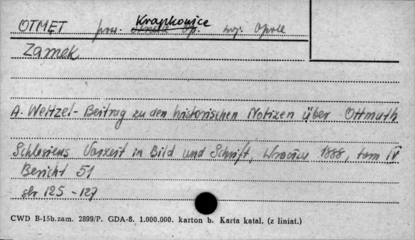 OTMET pow. Krapkowice woj. Opole
Zamek
A. Weltzel - Beitrag zu den historischen Notizen über Ottmuth
Schlesiens Vorzeit in Bild und Schrift, Wrocław 1888, tom IV
Bericht 51
str 125 - 127
CWD B-15b.zam. 2899/P. GDA-8. 1.000.000. karton b. Karta katal. (z liniat.)